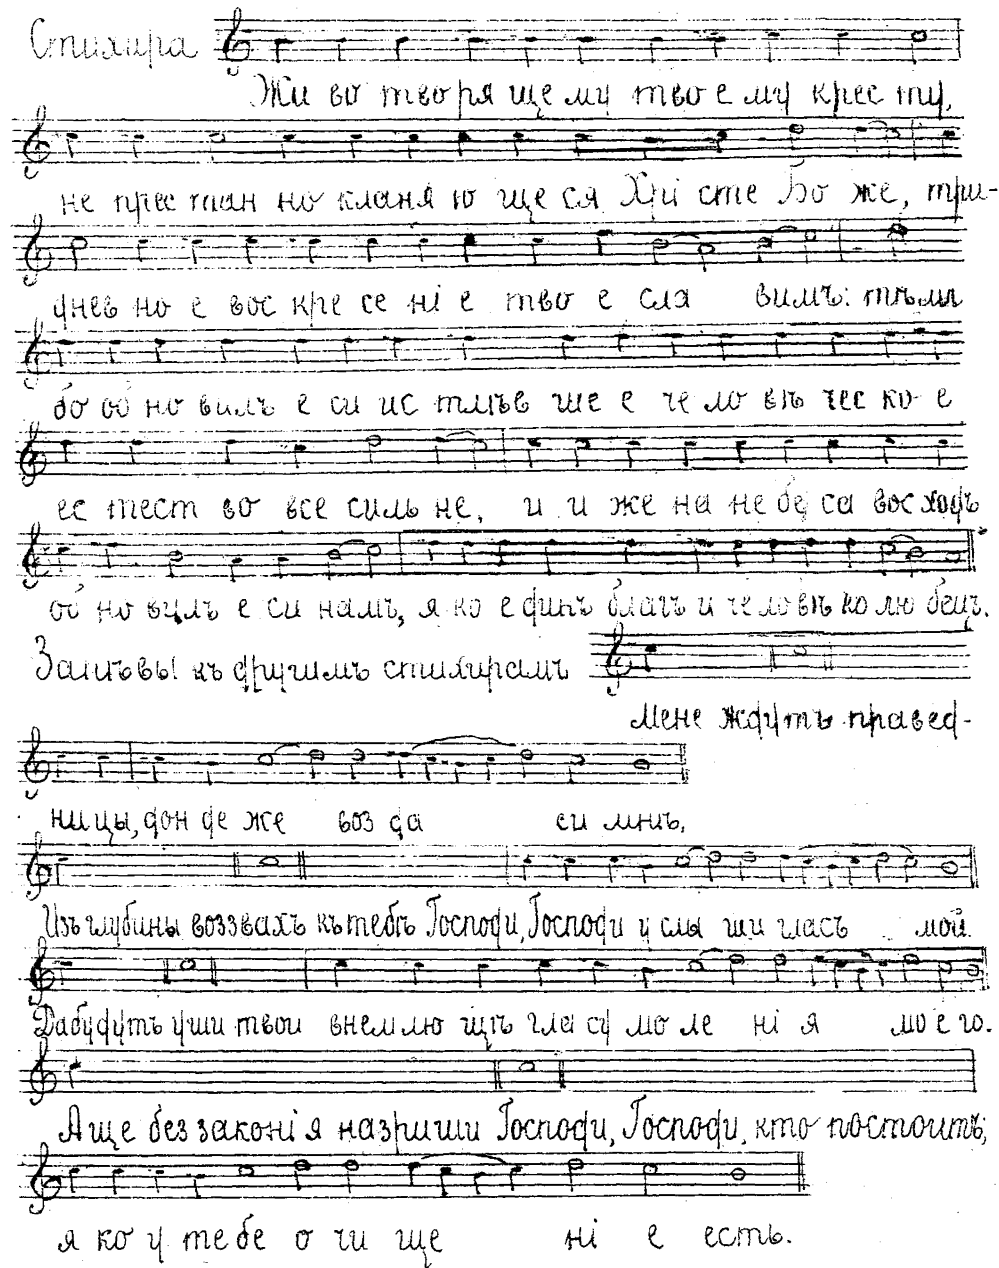 Стихира
Жи во тво ря ще му тво е му крес ту,
не прес тан но кланя ю ще ся Хрі сте Бо же, три-
днев но е вос кре се ні е тво е сла вимъ: тѣмъ
бо об но вилъ е си ис тлѣв ше е че ло вѣ чес ко е
ес тест во все силь не, и и же на не бе са вос ходъ
об но вилъ е си намъ, я ко е динъ благъ и че ловѣ ко лю бецъ.
Запѣвы къ другимъ стихирамъ
Мене ждутъ правед-
ницы, дон де же воз да си мнѣ.
Изъ глубины воззвахъ къ тебѣ Господи, Господи у слы ши гласъ мой.
Да будутъ уши твои внем лю щѣ гла су мо ле ні я мо е го.
Аще беззакони я назриши Господи, Господи, кто постоитъ;
я ко у те бе о чи ще ні е есть.